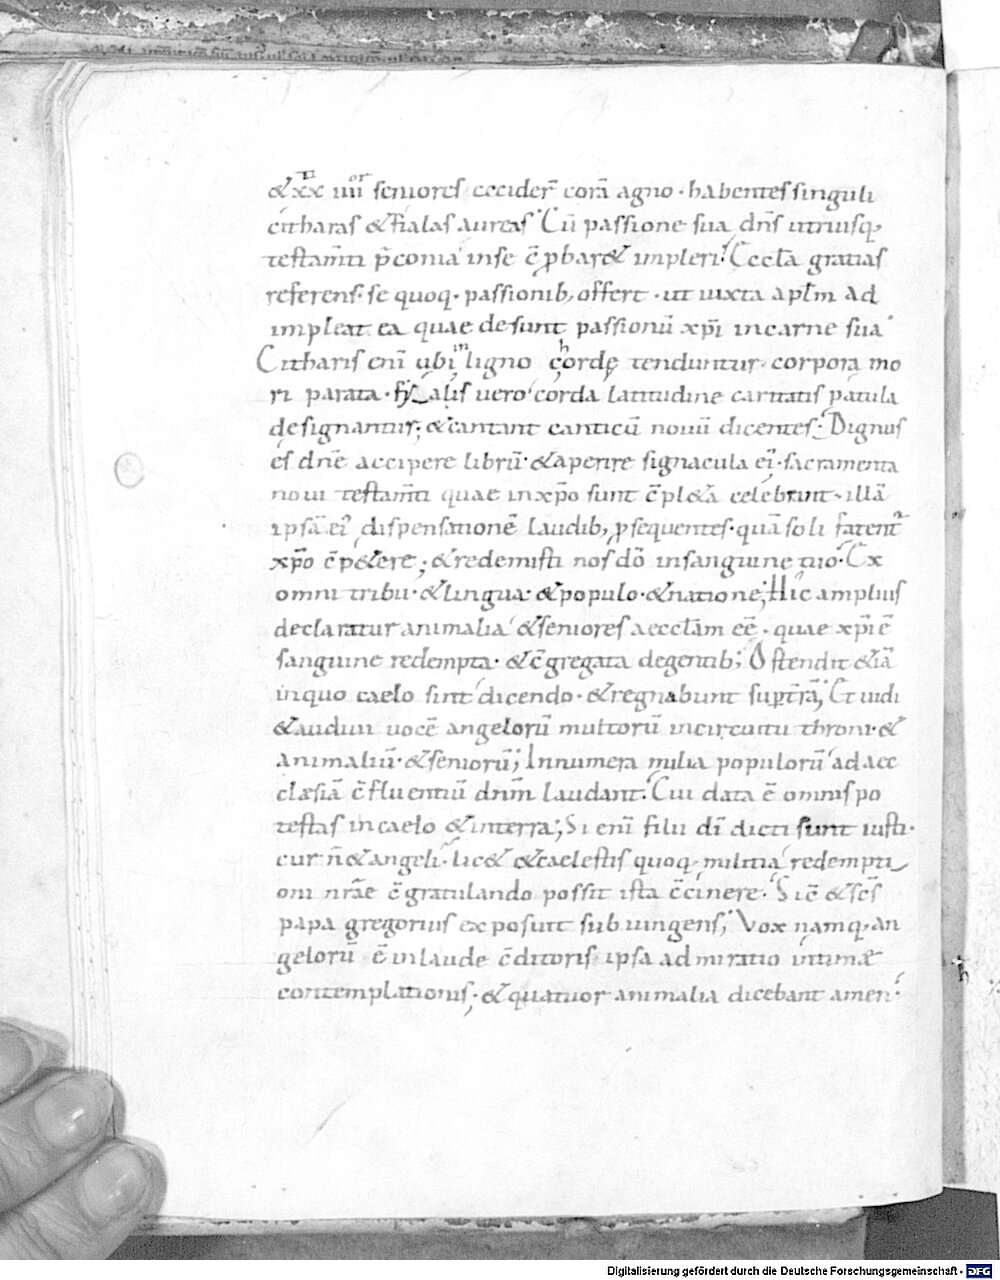 &xx iiii or seniores cecider̄ corā agno · habentes singuli
citharas & fialas aureas · Cū passione sua dn̄s utriusq;
testam̄ti p̄conia inse c̄ ꝓbar& impleri · Eccl̄a gratias
referens · se quoq · passionib; offert · ut iuxta apl̄m ad
impleat ea quae desunt passionū xp̄i incarne sua ·
Citharis enī ubi in ligno chordę tenduntur · corpora mo
ri parata · fialis uero corda latitudine caritatis patula
designantur; & cantant canticū nouū dicentes · Dignus
es dn̄e accipere librū · & aperire signacula ei; · sacramenta
noui testam̄ti quae inxp̄o sunt c̄pl&a celebrant · illā
ipsā ei; dispensationē laudib; ꝓsequentes · quā soli fatent᷑
xp̄o c̄p&ere; & redemisti nos dō insanguine tuo · Ex
omni tribu · & lingua · & populo · & natione; Hic amplius
declaratur animalia & seniores aeccl̄am eē · quae xp̄i ē
sanguine redempta · & c̄gregata degentib; Ostendit &iā
inquo caelo sint dicendo · & regnabunt sup̄ t̄rā; Et uidi
& audiui uocē angelorū multorū incircuitu throni · &
animaliū · & seniorū; Innumera milia populorū ad aec
claesiā c̄fluentiū dn̄m laudant · Cui data ē omnis po
testas incaelo & interra; Si enī filii dī dicti sunt iusti ·
cur n̄ & angeli · lic& & caelestis quoq militia redempti
oni nr̄ae c̄gratulando possit ista c̄cinere · Sic & sc̄s
papa gregorius exposuit subiungens; Vox namq · an
gelorū ē inlaude c̄ditoris ipsa admiratio intimæ
contemplationis; & quatuor animalia dicebant amen ·
Digitalisierung gefördert durch die Deutsche Forschungsgemeinschaft - DFG